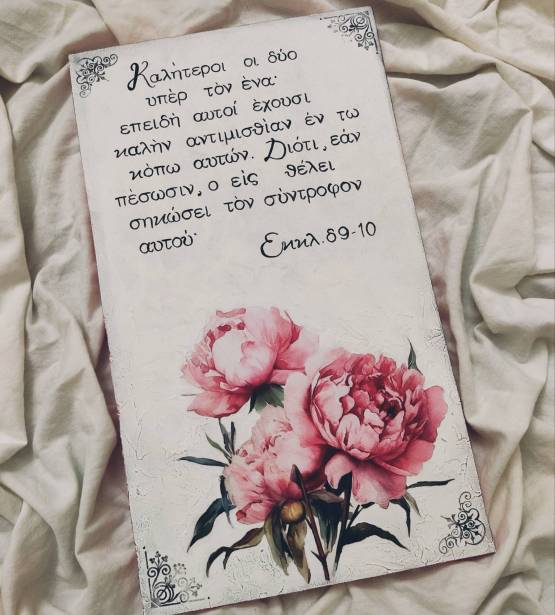 Καλὴτεροι οι δύο
υπὲρ τὸν ὲνα·
επειδὴ αυτοί ὲχουσι
καλὴν αντιμισθὶαν ἐν τω
κὸπω αυτών. Διότι, εάν
πὲσωσιν, ο εἰς θέλει
σηκώσει τὸν σὺντροφον
αυτού·
Εκκλ. δ9-10